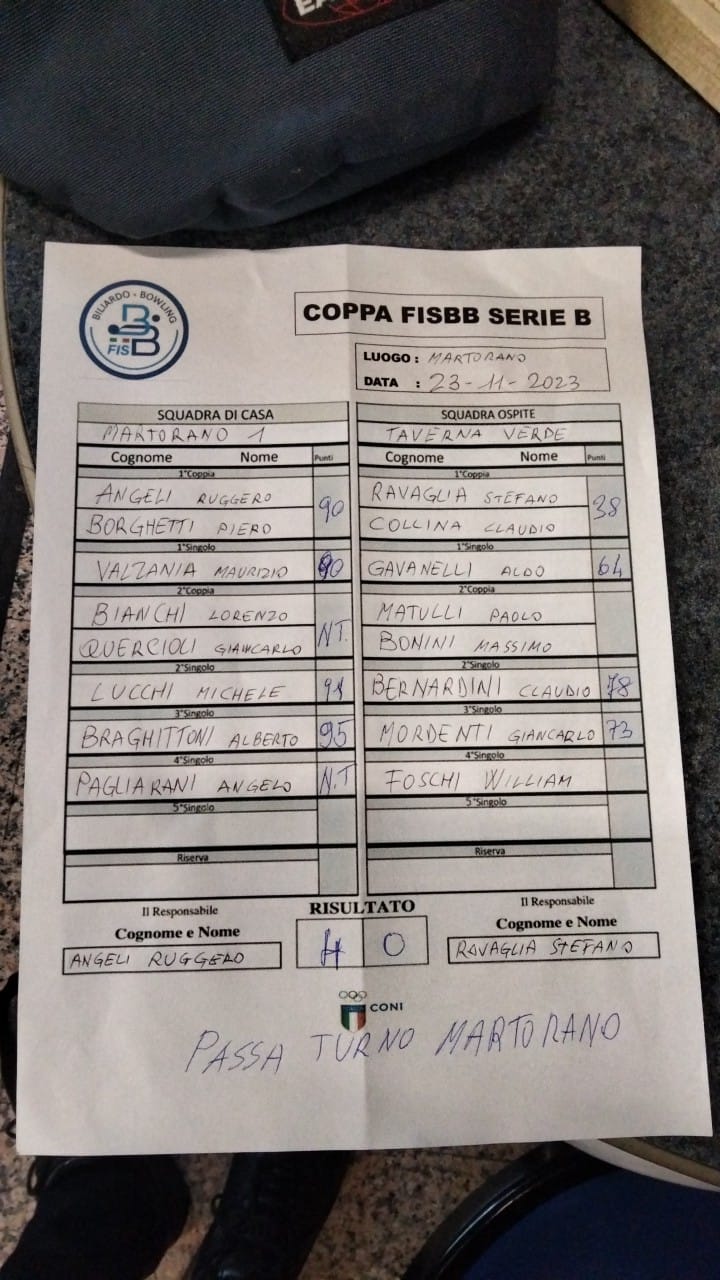 BILIARDO - BOWLING
FISBB
COPPA FISBB SERIE B
LUOGO : MARTORANO
DATA : 23-11-2023
SQUADRA DI CASA
MARTORANO 1
Cognome Nome Punti
1°Coppia
ANGELI RUGGERO
90
BORGHETTI PIERO
1°Singolo
VALZANIA MAURIZIO
2°Coppia
BIANCHI LORENZO
NT.
QUERCIOLI GIANCARLO
2°Singolo
LUCCHI MICHELE
3°Singolo
BRAGHITTONI ALBERTO 95
4°Singolo
PAGLIARANI ANGELO N.T
5°Singolo
Riserva
SQUADRA OSPITE
TAVERNA VERDE
Cognome Nome Punti
1°Coppia
RAVAGLIA STEFANO
38
COLLINA CLAUDIO
1°Singolo
GAVANELLI ALDO 64
2°Coppia
MATULLI PAOLO
BONINI MASSIMO
2°Singolo
BERNARDINI CLAUDIO 78
3°Singolo
MORDENTI GIANCARLO 73
4°Singolo
FOSCHI WILLIAM
5°Singolo
Riserva
Il Responsabile
Cognome e Nome
ANGELI RUGGERO
RISULTATO
4 0
Il Responsabile
Cognome e Nome
RAVAGLIA STEFANO
CONI
PASSA TURNO MARTORANO